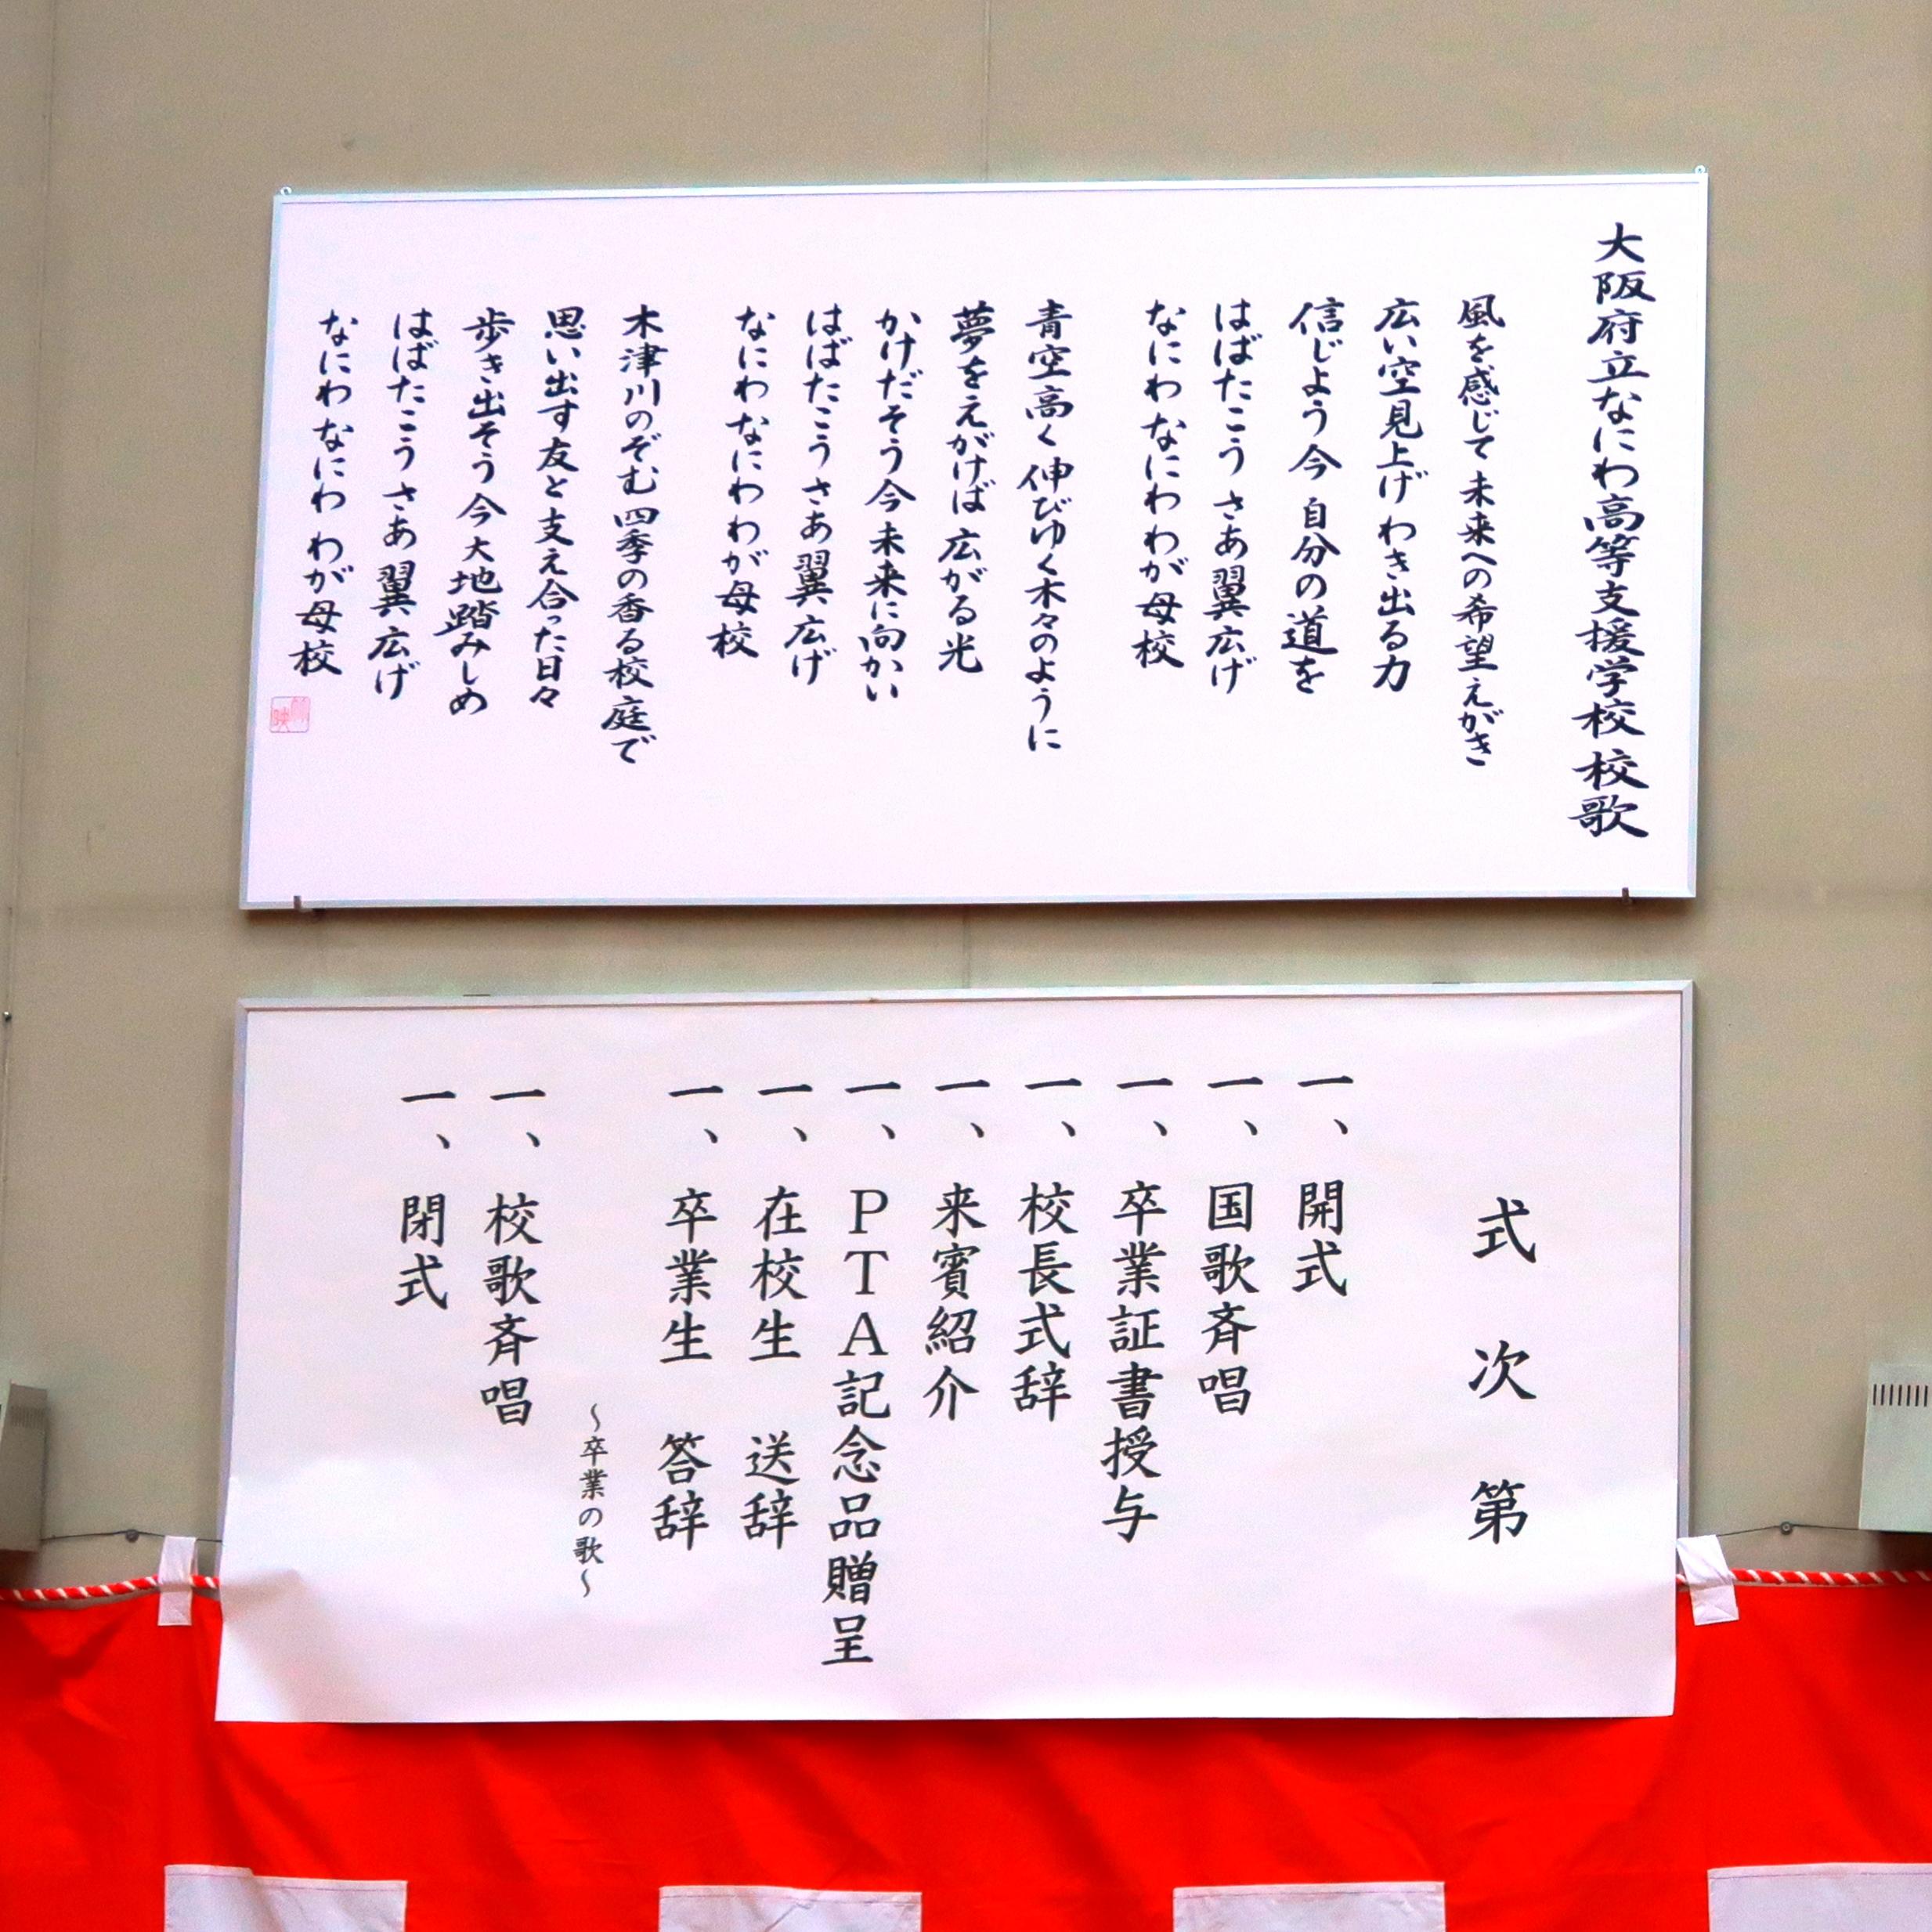 大阪府立なにわ高等支援学校校歌
風を感じて 未来への希望えがき
広い空見上げ わき出る力
信じよう今 自分の道を
はばたこう さあ翼広げ
なにわ なにわ わが母校
青空高く 伸びゆく木々のように
夢をえがけば 広がる光
かけだそう今 未来に向かい
はばたこう さあ翼広げ
なにわ なにわ わが母校
木津川のぞむ 四季の香る校庭で
思い出す友と 支え合った日々
歩き出そう 今 大地踏みしめ
はばたこう さあ 翼広げ
なにわ なにわ わが母校
式次第
一、開式
一、国歌斉唱
一、卒業証書授与
一、校長式辞
一、来賓紹介
一、PTA記念品贈呈
一、在校生 送辞
一、卒業生 答辞
~卒業の歌~
一、校歌斉唱
一、閉式